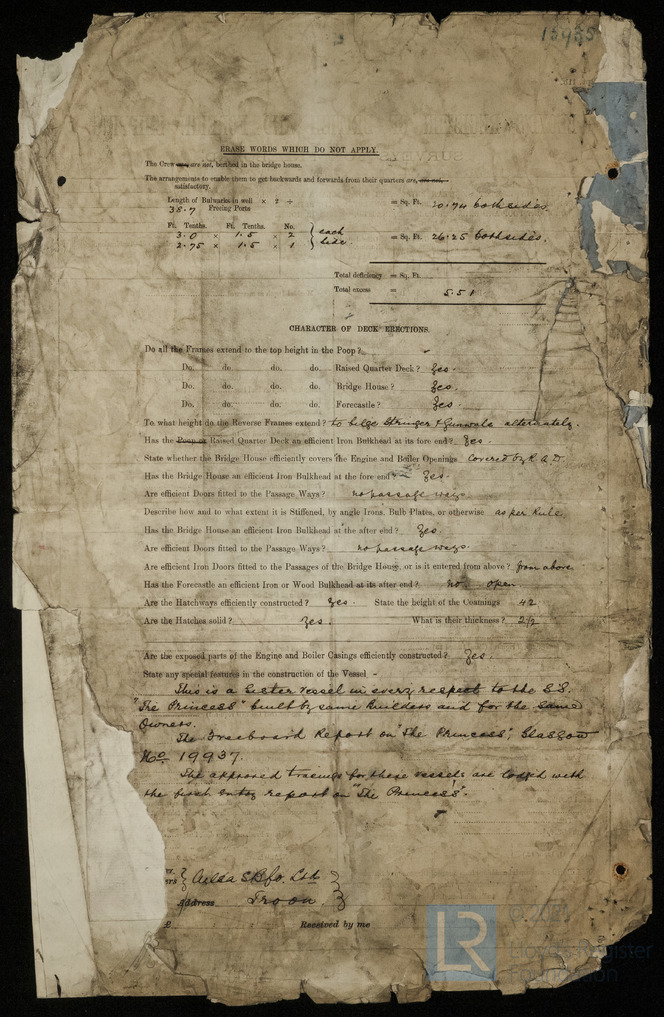 15935
ERASE WORDS WHICH DO NOT APPLY.
The Crew are, are not, berthed in the bridge house.
The arrangements to enable them to get backwards and forwards from their quarters are, are not,
satisfactory.
Length of Bulwarks in well × 2 ÷ = Sq. Ft. 20.74 both sides.
38.7 Freeing Ports
Ft. Tenths. Ft. Tenths. No.
3.0 × 1.5 × 2 } each
2.75 × 1.5 × 1 } side. = Sq. Ft. 26.25 both sides.
Total deficiency = Sq. Ft.
Total excess = 5.51
CHARACTER OF DECK ERECTIONS.
Do all the Frames extend to the top height in the Poop? -
Do. do. do. do. Raised Quarter Deck? Yes.
Do. do. do. do. Bridge House? Yes.
Do. do. do. do. Forecastle? Yes
To what height do the Reverse Frames extend? to bilge Stringer & Gunwale alternately.
Has the Poop or Raised Quarter Deck an efficient Iron Bulkhead at its fore end? Yes.
State whether the Bridge House efficiently covers the Engine and Boiler Openings Covered by R.Q.D.
Has the Bridge House an efficient Iron Bulkhead at the fore end? Yes.
Are efficient Doors fitted to the Passage Ways? no passage ways
Describe how and to what extent it is Stiffened, by angle Irons, Bulb Plates, or otherwise as per Rule.
Has the Bridge House an efficient Iron Bulkhead at the after end? Yes.
Are efficient Doors fitted to the Passage Ways? no passage ways
Are efficient Iron Doors fitted to the Passages of the Bridge House, or is it entered from above? from above
Has the Forecastle an efficient Iron or Wood Bulkhead at its after end? no. open
Are the Hatchways efficiently constructed? Yes. State the height of the Coamings 42
Are the Hatches solid? Yes. What is their thickness? 2½
Are the exposed parts of the Engine and Boiler Casings efficiently constructed? Yes.
State any special features in the construction of the Vessel -
This is a Sister Vessel in every respect to the S.S.
"The Princess" built by same Builders and for the same
Owners.
The Freeboard Report on "The Princess", Glasgow
No 19937.
The approved tracings for these vessels are lodged with
the first entry report on "The Princess".
Ailsa S B Co. Ltd
Address Troon
£ Received by me
LR © 2021
Lloyd's Register
Foundation